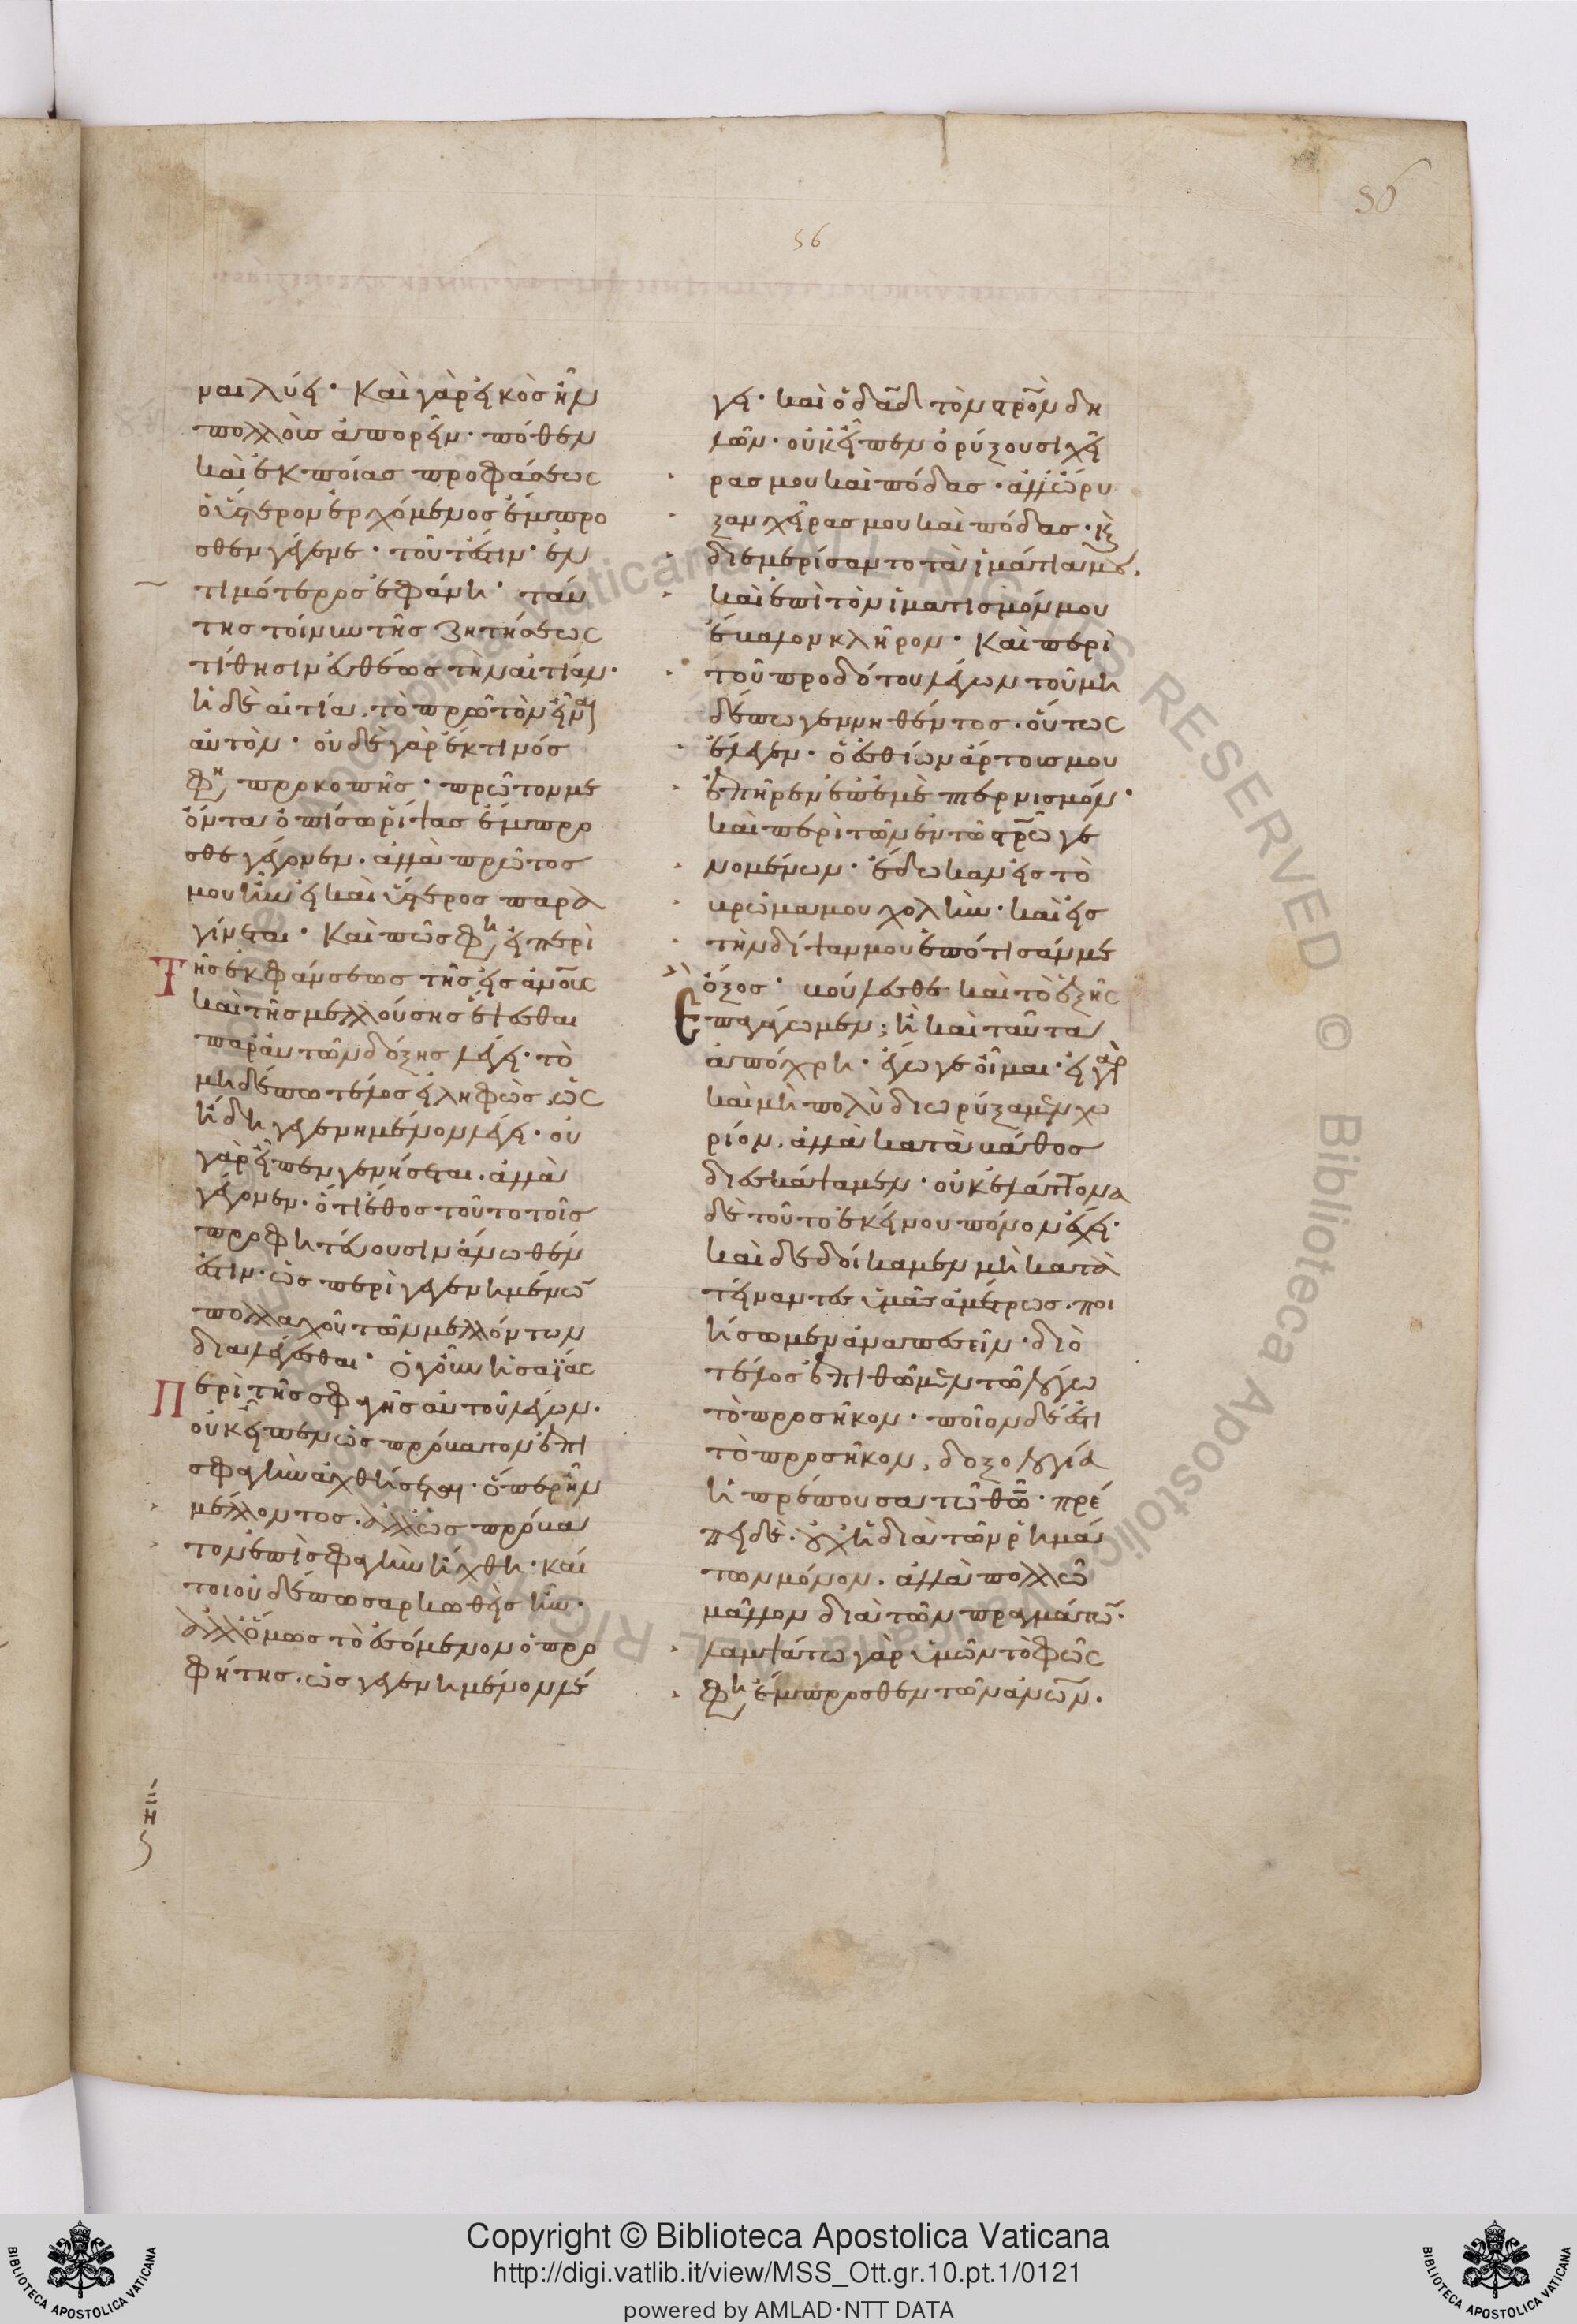 56
56
ναι λύει· Καὶ γὰρ εἰκὸς ἦν
πολλοῖς ἀπορεῖν· πόθεν
καὶ ἐκ ποίας προφάσεως
ὁ ὕστερον ἐρχόμενος ἔμπρο
σθεν γέγονε· τοῦτ' ἔστιν· ἐν
τιμότερος ἐφάνη· ταύ
της τοίνυν τῆς ζητήσεως
τίθησιν εὐθέως τὴν αἰτίαν·
ἡ δὲ αἰτία, τὸ πρῶτον εἶναι
αὐτὸν· οὐδὲ γὰρ ἐκ τινός
φη προκοπῆς· πρῶτον με
ὄντα ὀπίσω ῥίψας ἔμπρο
σθε γέγονεν. ἀλλὰ πρῶτος
μου ἦν εἰ καὶ ὕστερος παρα
γίνεται· Καὶ πῶς φη εἰ περὶ
Τῆς ἐκφάνσεως τῆς εἰς ἀνους
καὶ τῆς μελλούσης ἕψεσθαι
παρ' αὐτῶν δόξης λέγει· τὸ
μηδέπω τέλος εἰληφὼς, ὡς
ἤδη γεγενημένον λέγει· οὐ
γὰρ εἶπεν γενήσεται. ἀλλὰ
γέγονεν· ὅτι ἔθος τοῦτο τοῖς
προφητεύουσιν ἄνωθέν
ἐστιν· ὡς περὶ γεγενημένω
πολλαχοῦ τῶν μελλόντων
διαλέγεσθαι· ὁ γοῦν ἡσαΐας
Περὶ τῆς σφαγῆς αὐτοῦ λέγων.
οὐκ εἶπεν ὡς πρόβατον ἐπὶ
σφαγὴν ἀχθήσεται· ὅπερ ἦν
μέλλοντος. ἀλλ' ὡς πρόβα
τον ἐπὶ σφαγὴν ἤχθη· καί
τοι οὐδέπω σαρκωθεὶς ἦν·
ἀλλ' ὅμως τὸ ἐσόμενον ὁ προ
φήτης. ὡς γεγενημένον λέ
γει· καὶ ὁ δαδ τὸν στρον δη
λῶν· οὐκ εἶπεν ὀρύξουσι χεῖ
ρας μου καὶ πόδας· ἀλλ' ὤρυ
ξαν χεῖρας μου καὶ πόδας· κ
διεμερίσαντο τὰ ἱμάτια μου.
καὶ ἐπὶ τὸν ἱματισμόν μου
ἔβαλον κλῆρον· Καὶ περὶ
τοῦ προδότου λέγων τοῦ μη
δέπω γεννηθέντος. οὕτως
ἔλεγεν· ὁ ἐσθίων ἄρτους μου
ἐπῆρεν ἐπ' ἐμὲ πτερνισμόν·
καὶ περὶ τῶν ἐν τῶ στρῶ γε
νομένων· ἔδωκαν εἰς τὸ
βρῶμα μου χολὴν· καὶ εἰς
τὴν δίψαν μου ἐπότισάν με
ὄξος· βούλεσθε καὶ τὸ ἑξῆς
Επαγάγωμεν; ἢ καὶ ταῦτα
ἀπόχρη· ἔγωγε οἶμαι· εἰ γὰρ
καὶ μὴ πολὺ διωρύξαμεν χω
ρίον. ἀλλὰ κατὰ βάθος
διεσκάψαμεν· οὐκ ἐλάττονα
δὲ τοῦτο ἐκείνου πόνον ἔχει·
καὶ δεδοίκαμεν μὴ κατα
τείναντες ὑμᾶς ἀμέτρως. ποι
ήσωμεν ἀναπεσεῖν· διὸ
τέλος ἐπιθῶμεν τῶ λόγω
τὸ προσῆκον· ποῖον δέ ἐστι
τὸ προσῆκον, δοξολογία
ἡ πρέπουσα τῶ θῶ· πρέ
πει δὲ. οὐχ ἡ διὰ τῶν ῥημά
των μόνον. ἀλλὰ πολλῶ
μᾶλλον διὰ τῶν πραγμάτω·
λαμψάτω γὰρ ὑμῶν τὸ φῶς
φη ἔμπροσθεν τῶν ἀνων.
Copyright © Biblioteca Apostolica Vaticana
http://digi.vatlib.it/view/MSS_Ott.gr.10.pt.1/0121
powered by AMLAD·NTT DATA